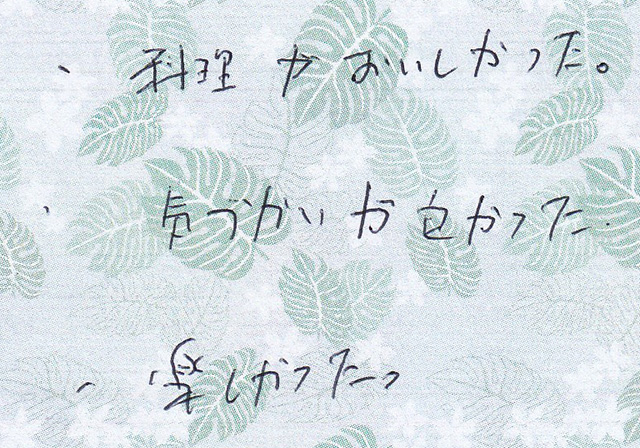 ・料理がおいしかった。
・気づかいが良かった.
・楽しかった。